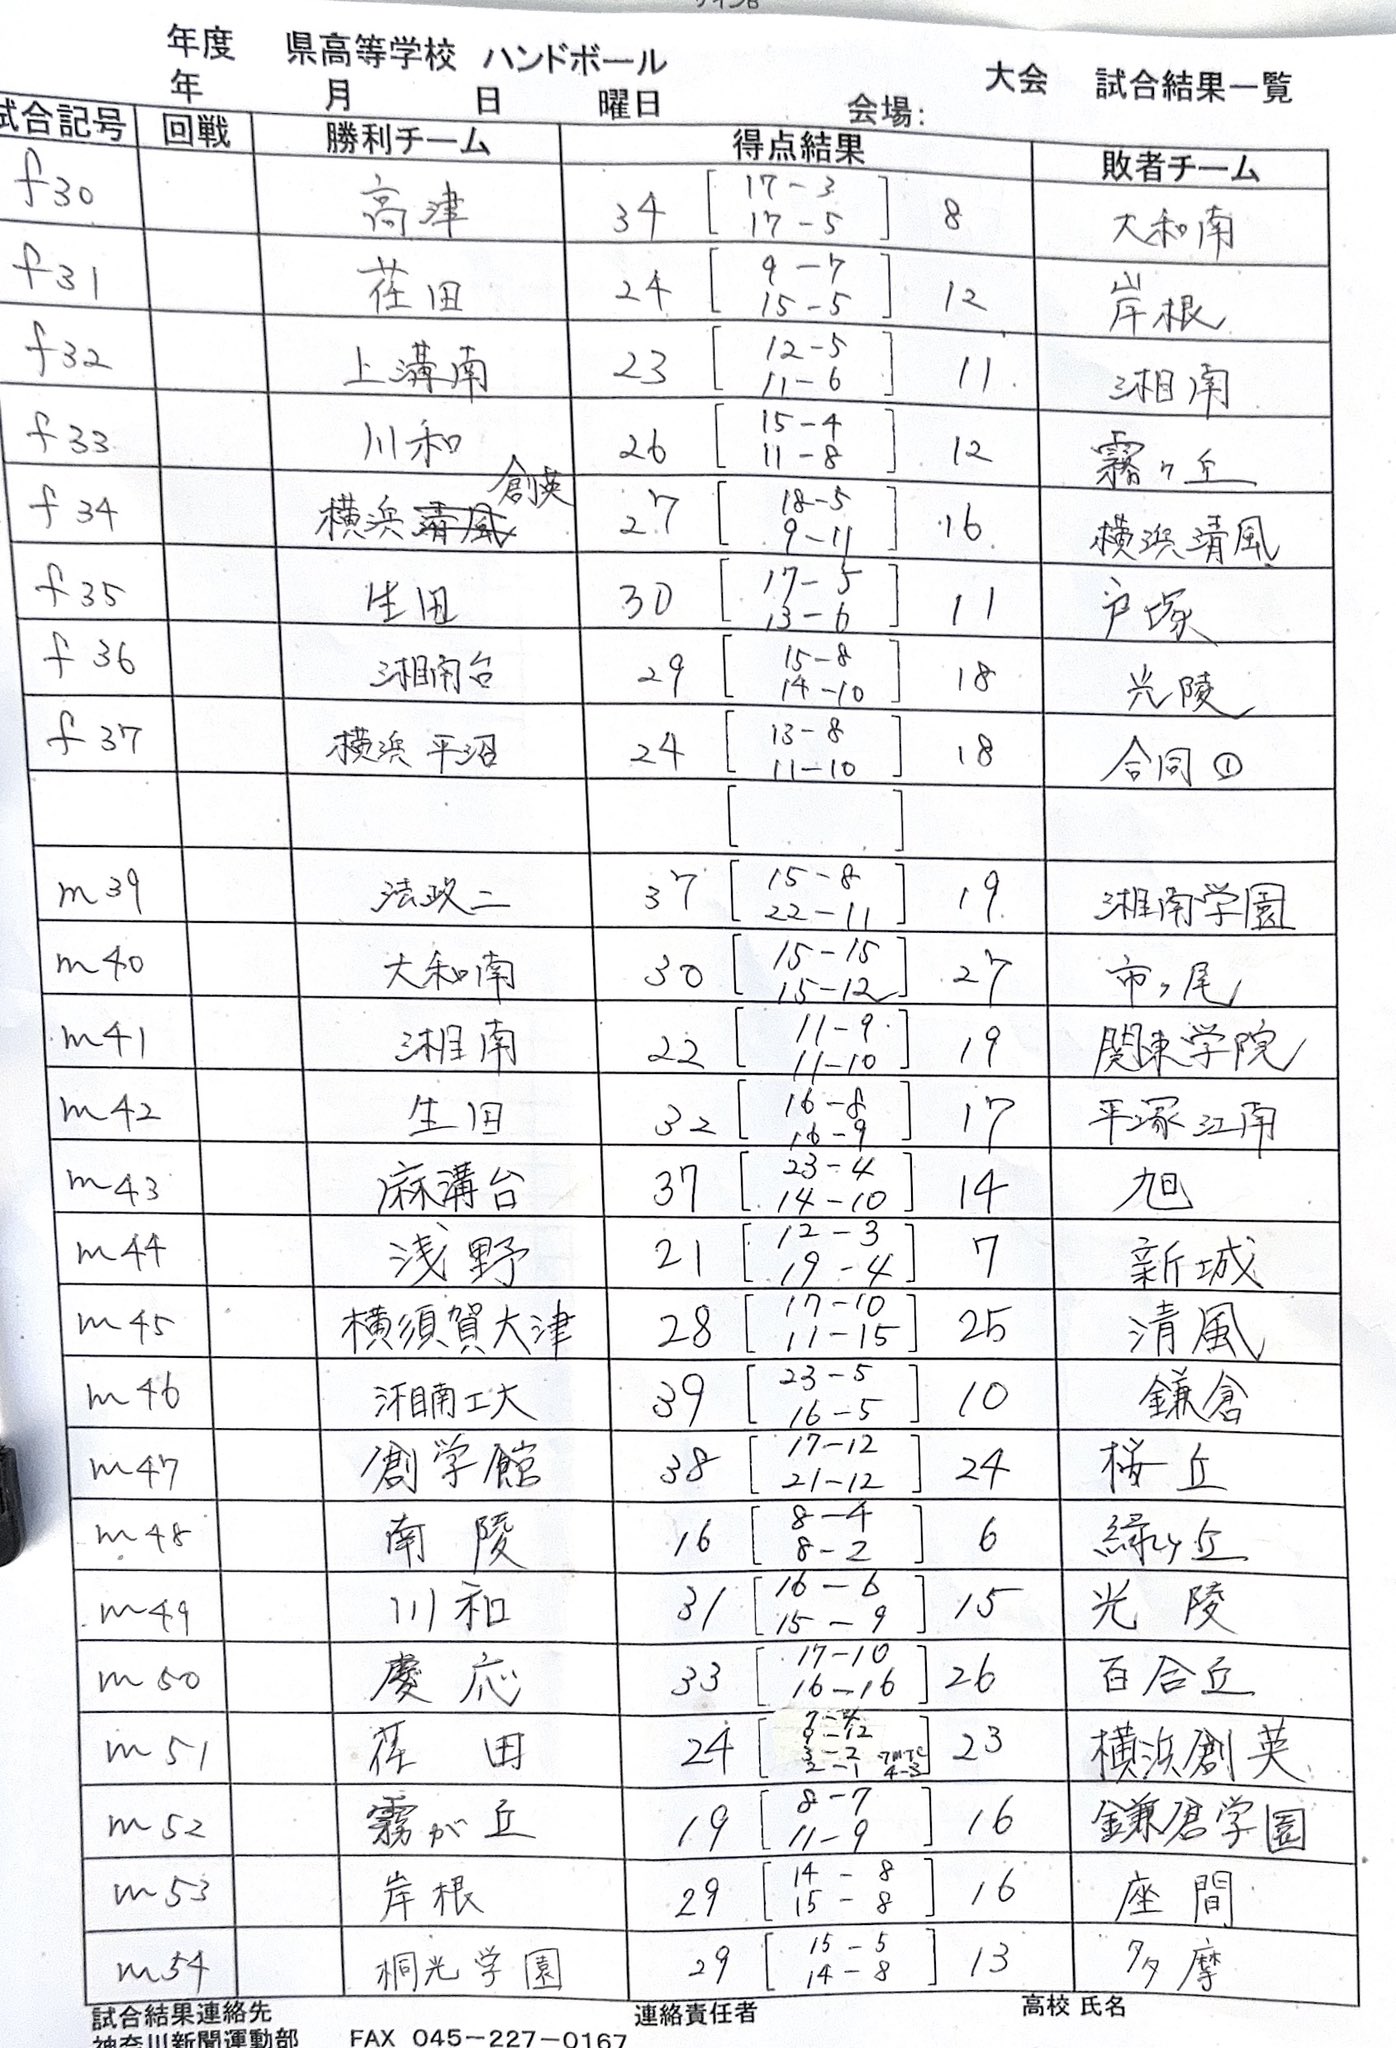 年度 県高等学校 ハンドボール 大会 試合結果一覧
年 月 日 曜日 会場:
試合記号 回戦 勝利チーム 得点結果 敗者チーム
f30 高津 34 [17-3 17-5] 8 大和南
f31 荏田 24 [9-7 15-5] 12 岸根
f32 上溝南 23 [12-5 11-6] 11 湘南
f33 川和 26 [15-4 11-8] 12 霧ヶ丘
f34 横浜清風 創英 27 [18-5 9-11] 16 横浜清風
f35 生田 30 [17-5 13-6] 11 戸塚
f36 湘南台 29 [15-8 14-10] 18 光陵
f37 横浜平沼 24 [13-8 11-10] 18 合同①
[ ]
m39 法政二 37 [15-8 22-11] 19 湘南学園
m40 大和南 30 [15-15 15-12] 27 市ヶ尾
m41 湘南 22 [11-9 11-10] 19 関東学院
m42 生田 32 [16-8 16-9] 17 平塚江南
m43 麻溝台 37 [23-4 14-10] 14 旭
m44 浅野 21 [12-3 19-4] 7 新城
m45 横須賀大津 28 [17-10 11-15] 25 清風
m46 湘南工大 39 [23-5 16-5] 10 鎌倉
m47 創学館 38 [17-12 21-12] 24 桜丘
m48 南陵 16 [8-4 8-2] 6 緑ヶ丘
m49 川和 31 [16-6 15-9] 15 光陵
m50 慶応 33 [17-10 16-16] 26 百合丘
m51 荏田 24 [3-2 2-1 7mTC 4-3] 23 横浜創英
m52 霧が丘 19 [8-7 11-9] 16 鎌倉学園
m53 岸根 29 [14-8 15-8] 16 座間
m54 桐光学園 29 [15-5 14-8] 13 多摩
試合結果連絡先 連絡責任者 高校 氏名
神奈川新聞運動部 FAX 045-227-0167